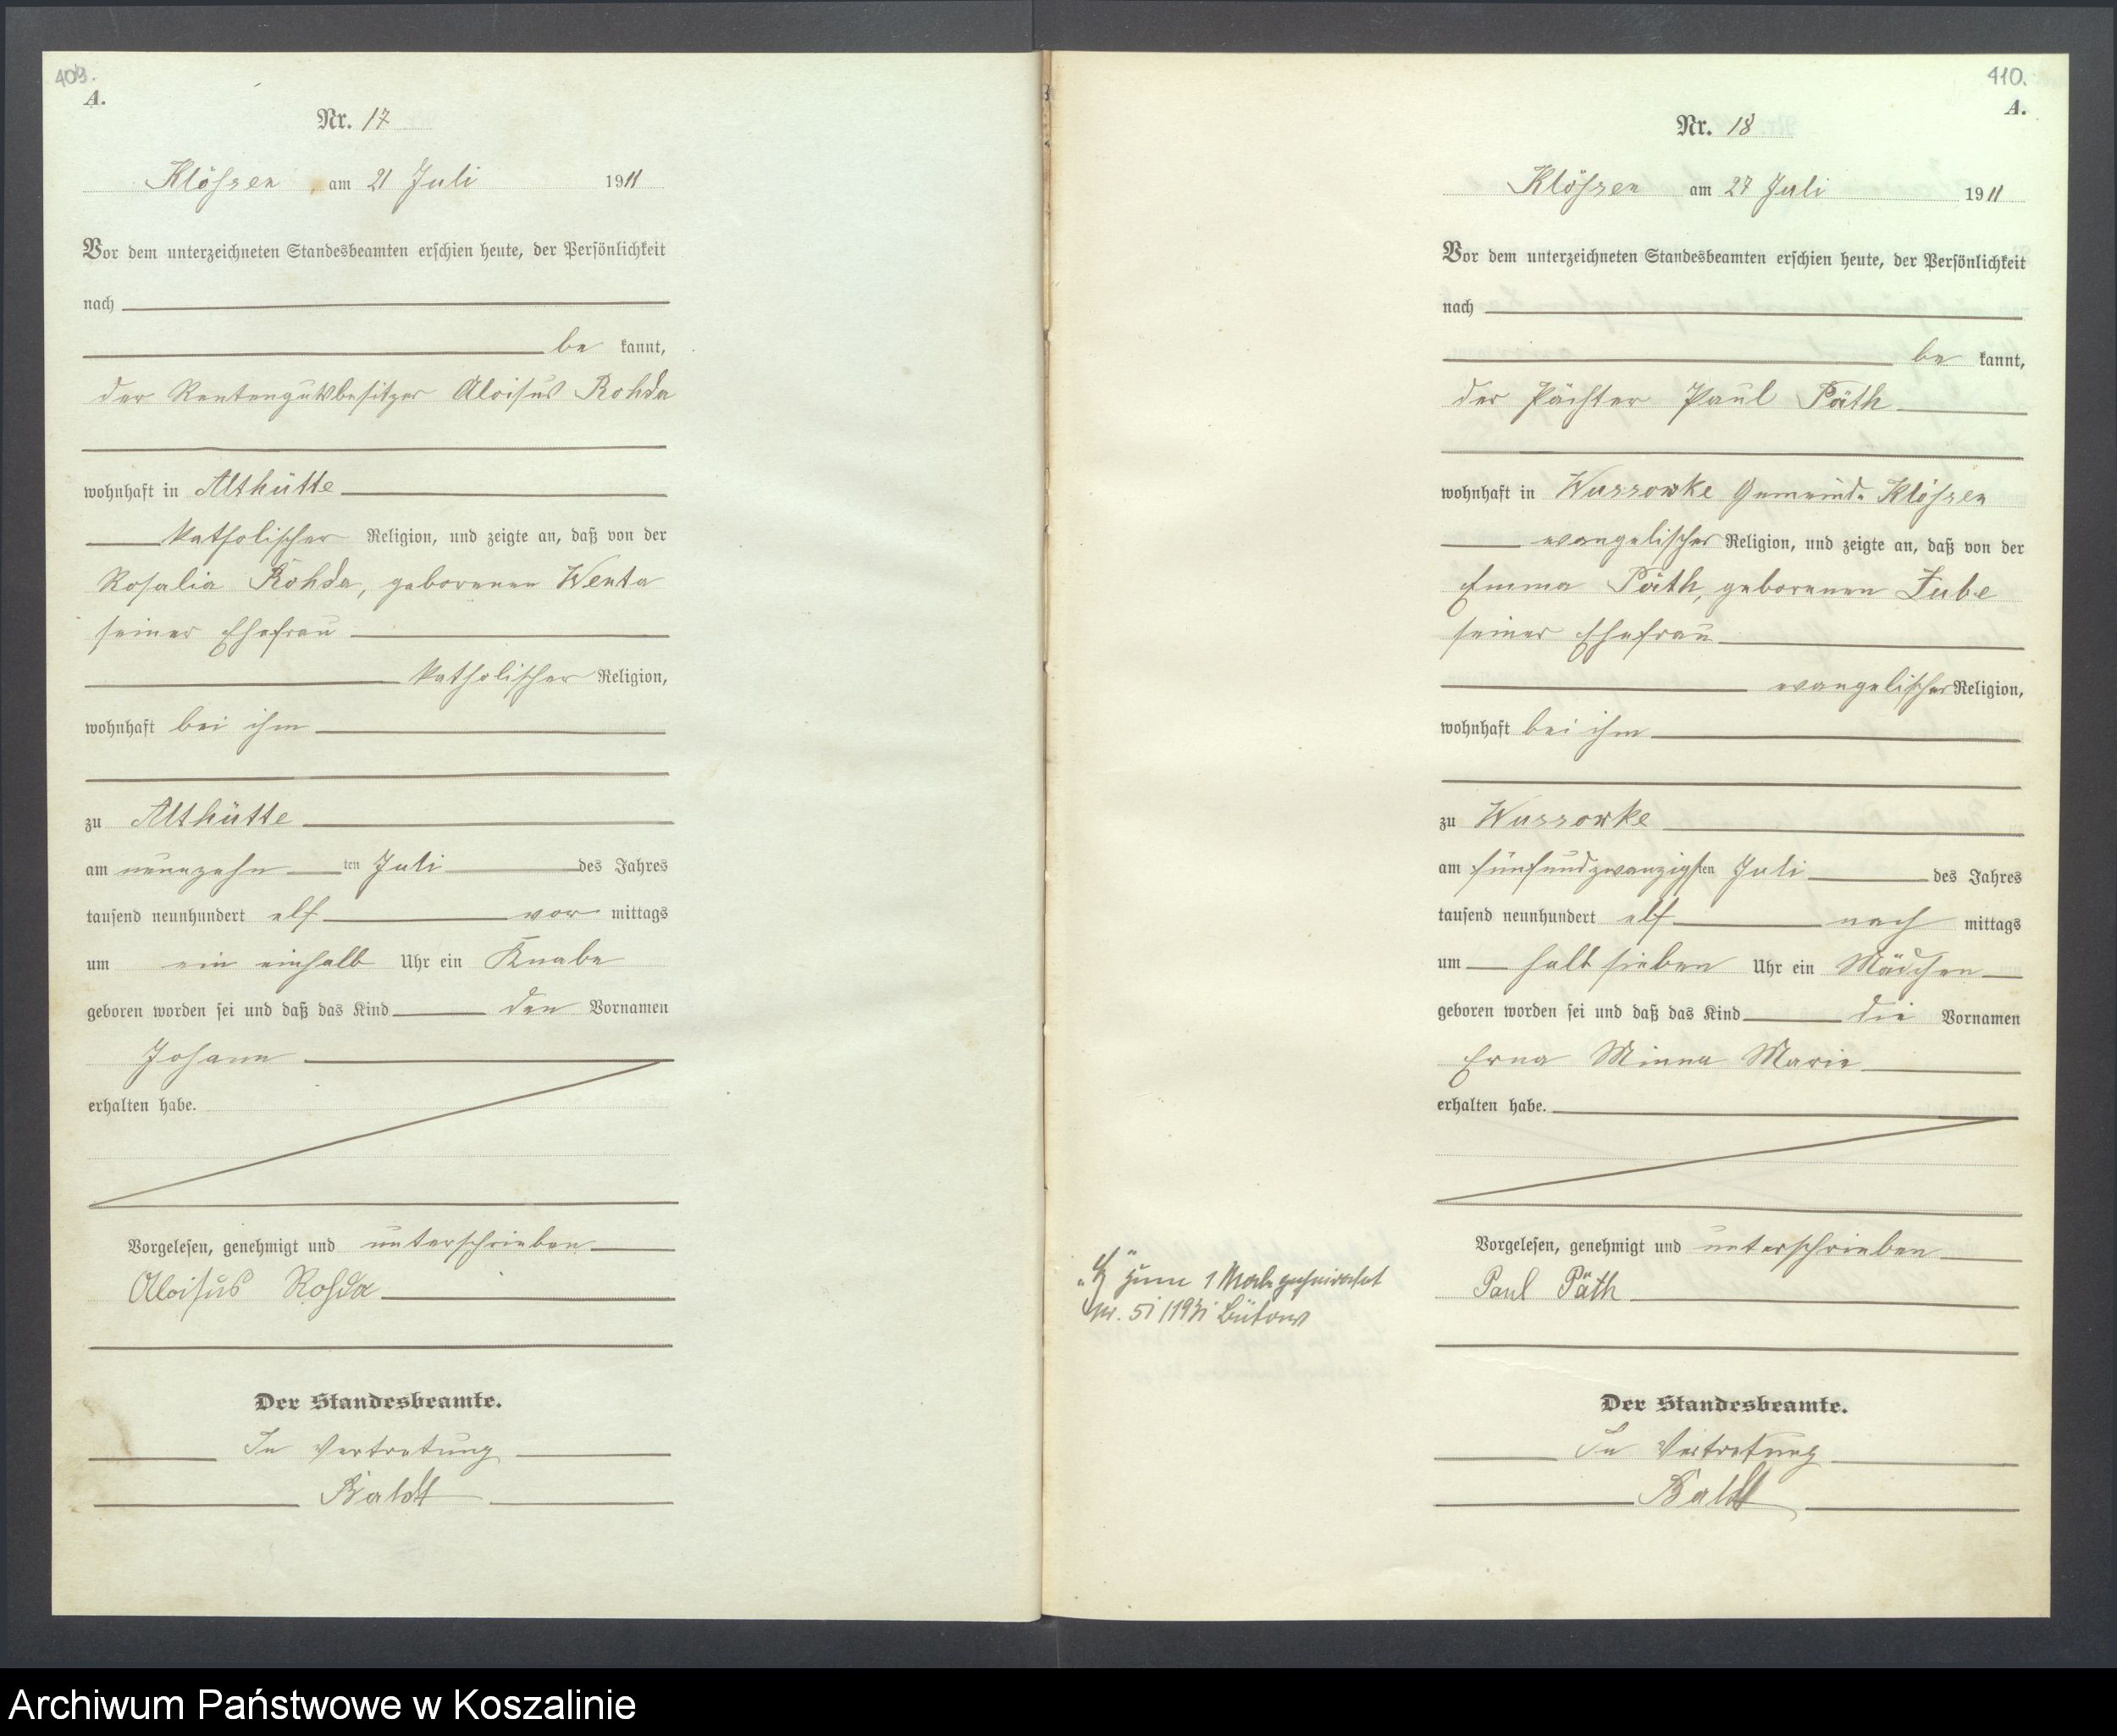 409.
A.
Nr. 17
Klößen am 21 Juli 1911
Vor dem unterzeichneten Standesbeamten erschien heute, der Persönlichkeit
nach
be kannt,
der Rentengutsbesitzer Aloisius Rohda
wohnhaft in Althütte
katholischer Religion, und zeigte an, daß von der
Rosalia Rohda, geborenen Wenta
seiner Ehefrau
katholischer Religion,
wohnhaft bei ihm
zu Althütte
am neunzehn ten Juli des Jahres
tausend neunhundert elf vor mittags
um ein einhalb Uhr ein Knabe
geboren worden sei und daß das Kind den Vornamen
Johann
erhalten habe.
Vorgelesen, genehmigt und unterschrieben
Aloisius Rohda
Der Standesbeamte.
In Vertretung
Baldt
410.
A.
Nr. 18
Klößen am 27 Juli 1911
Vor dem unterzeichneten Standesbeamten erschien heute, der Persönlichkeit
nach
be kannt,
der Pächter Paul Päth
wohnhaft in Wussowke Gemeinde Klößen
evangelischer Religion, und zeigte an, daß von der
Emma Päth, geborenen Zube
seiner Ehefrau
evangelischer Religion,
wohnhaft bei ihm
zu Wussowke
am fünfundzwanzigsten Juli des Jahres
tausend neunhundert elf nach mittags
um halb sieben Uhr ein Mädchen
geboren worden sei und daß das Kind die Vornamen
Erna Minna Marie
erhalten habe.
Vorgelesen, genehmigt und unterschrieben
Paul Päth
Der Standesbeamte.
In Vertretung
Baldt
zum 1 Male geheiratet
Nr. 51/1931 Bütow
Archiwum Państwowe w Koszalinie